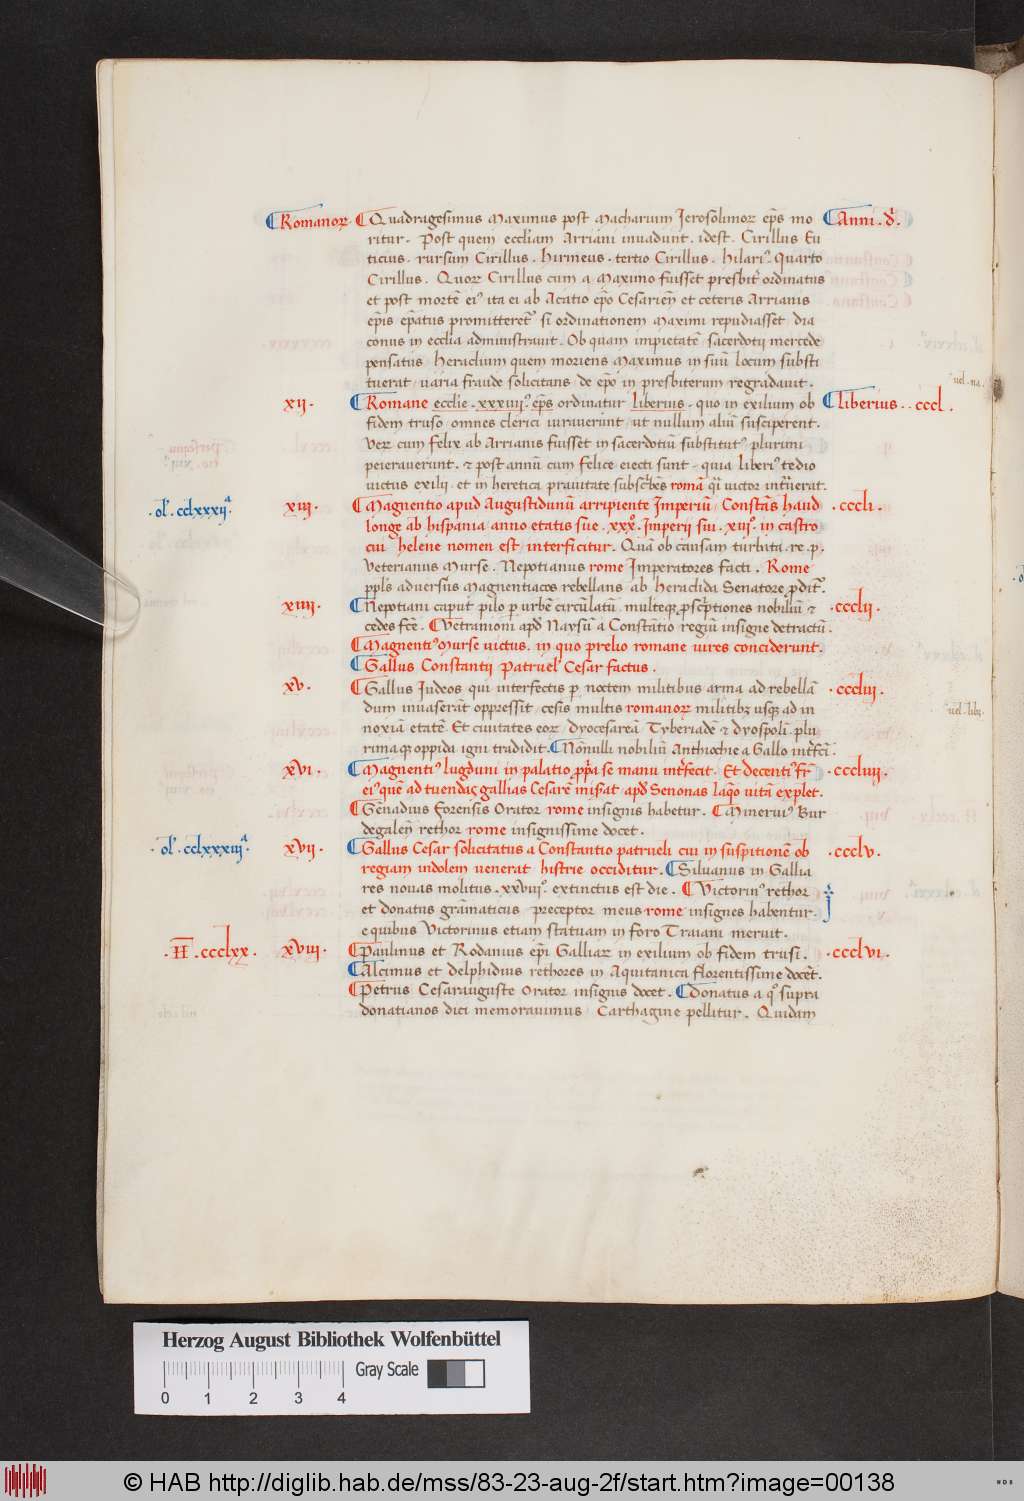 Romanoꝝ. Quadragesimus Maximus post Macharium Jerosolimoꝝ ep̄s mo Anni . d̄.
ritur. Post quem eccl̄iam Arriani inuadunt . idest . Cirillus Eu
ticius . rursum Cirillus . hirmeus . tertio Cirillus . hilariꝰ . quarto
Cirillus . Quoꝝ Cirillus cum a Maximo fuisset presbit̄ ordinatus
et post mortē eiꝰ ita ei ab Acatio ep̄o Cesariēn̄ et ceteris Arrianis
ep̄is ep̄atus promitteret̄ si ordinationem Maximi repudiasset dia
conus in ecclīa administrauit . Ob quam impietatē sacerdotii mercede
pensatus heraclium quem moriens Maximus in suū locum substi
tuerat uaria fraude solicitans de ep̄o in presbiterum regradauit .
xij . Romane eccl̄ie . xxxiiijꝰ. ep̄s ordinatur liberius . quo in exilium ob liberius . . cccl .
fidem truso omnes clerici iurauerunt ut nullum aliū susciperent .
Veꝝ cum felix ab Arrianis fuisset in sacerdotiū substitutꝰ plurimi
peierauerunt . ⁊ post annū cum felice eiecti sunt . quia liberiꝰ tedio
uictus exilij . et in heretica prauitate subscb̄ēs romā q̄i uictor int̄uerat .
. ol̄. cclxxxijᵃ. xiij . Magnentio apud Augustidunū arripiente Imperiū . Constās haud . cccli .
longe ab hispania anno etatis sue . xxxꝰ. Imperii sui . xiijꝰ. in castro
cui helene nomen est interficitur . Quā ob causam turbata . re . p .
Veterianus Murse . Nepotianus rome Imperatores facti . Rome
ppl̄s aduersus Magnentiacos rebellans ab heraclida Senatore ꝓdit̄ .
xiiij . Nepotiani caput pilo p urbē circūlatū multeqꝫ ꝓsc̄ptiones nobiliū ⁊ . ccclij .
cedes fc̄ē . Vetranioni apd̄ Naysū a Constātio regiū insigne detractū .
Magnentiꝰ Murse uictus . in quo prelio romane uires conciderunt .
Gallus Constantii patruel̄ Cesar factus .
xv . Gallus Iudeos qui interfectis p noctem militibus arma ad rebellā . cccliij .
dum inuaserāt oppressit cesis multis romanoꝝ militibꝫ usqꝫ ad in
noxiā etatē . Et ciuitates eoꝝ dyocesareā Tyberiadē ⁊ dyospoli . plu
rimaqꝫ oppida igni tradidit . Nonulli nobiliū Anthiochie a Gallo int̄fc̄i .
xvi . Magnentiꝰ lugduni in palatio ꝓp̄a se manu int̄fecit . Et decentiꝰ fr̄ . cccliiij .
eiꝰ quē ad tuendas gallias Cesarē misat apd̄ Senonas laq̄o uitā explet .
Genadius forensis Orator rome insignis habetur . Mineruiꝰ Bur
degalen̄ rethor rome insignissime docet .
. ol̄. cclxxxiijᵃ. xvij . Gallus Cesar solicitatus a Constantio patrueli cui in suspitionē ob . ccclv .
regiam indolem uenerat histrie occiditur . Siluanus in Gallia
res nouas molitus . xxviijꝰ. extinctus est die . Victorinꝰ rethor
et donatus grāmaticus preceptor meus rome insignes habentur .
e quibus Victorinus etiam statuam in foro Traiani meruit .
. H̄ . ccclxx . xviij . Paulinus et Rodanius ep̄i Galliaꝝ in exilium ob fidem trusi . . ccclvi .
Alcimus et delphidius rethores in Aquitanica florentissime docēt .
Petrus Cesarauguste Orator insignis docet . Donatus a qͦ supra
donatianos dici memorauimus Carthagine pellitur . Quidam
uel . na .
uel . lib̄ .
Herzog August Bibliothek Wolfenbüttel
Gray Scale
0 1 2 3 4
© HAB http://diglib.hab.de/mss/83-23-aug-2f/start.htm?image=00138